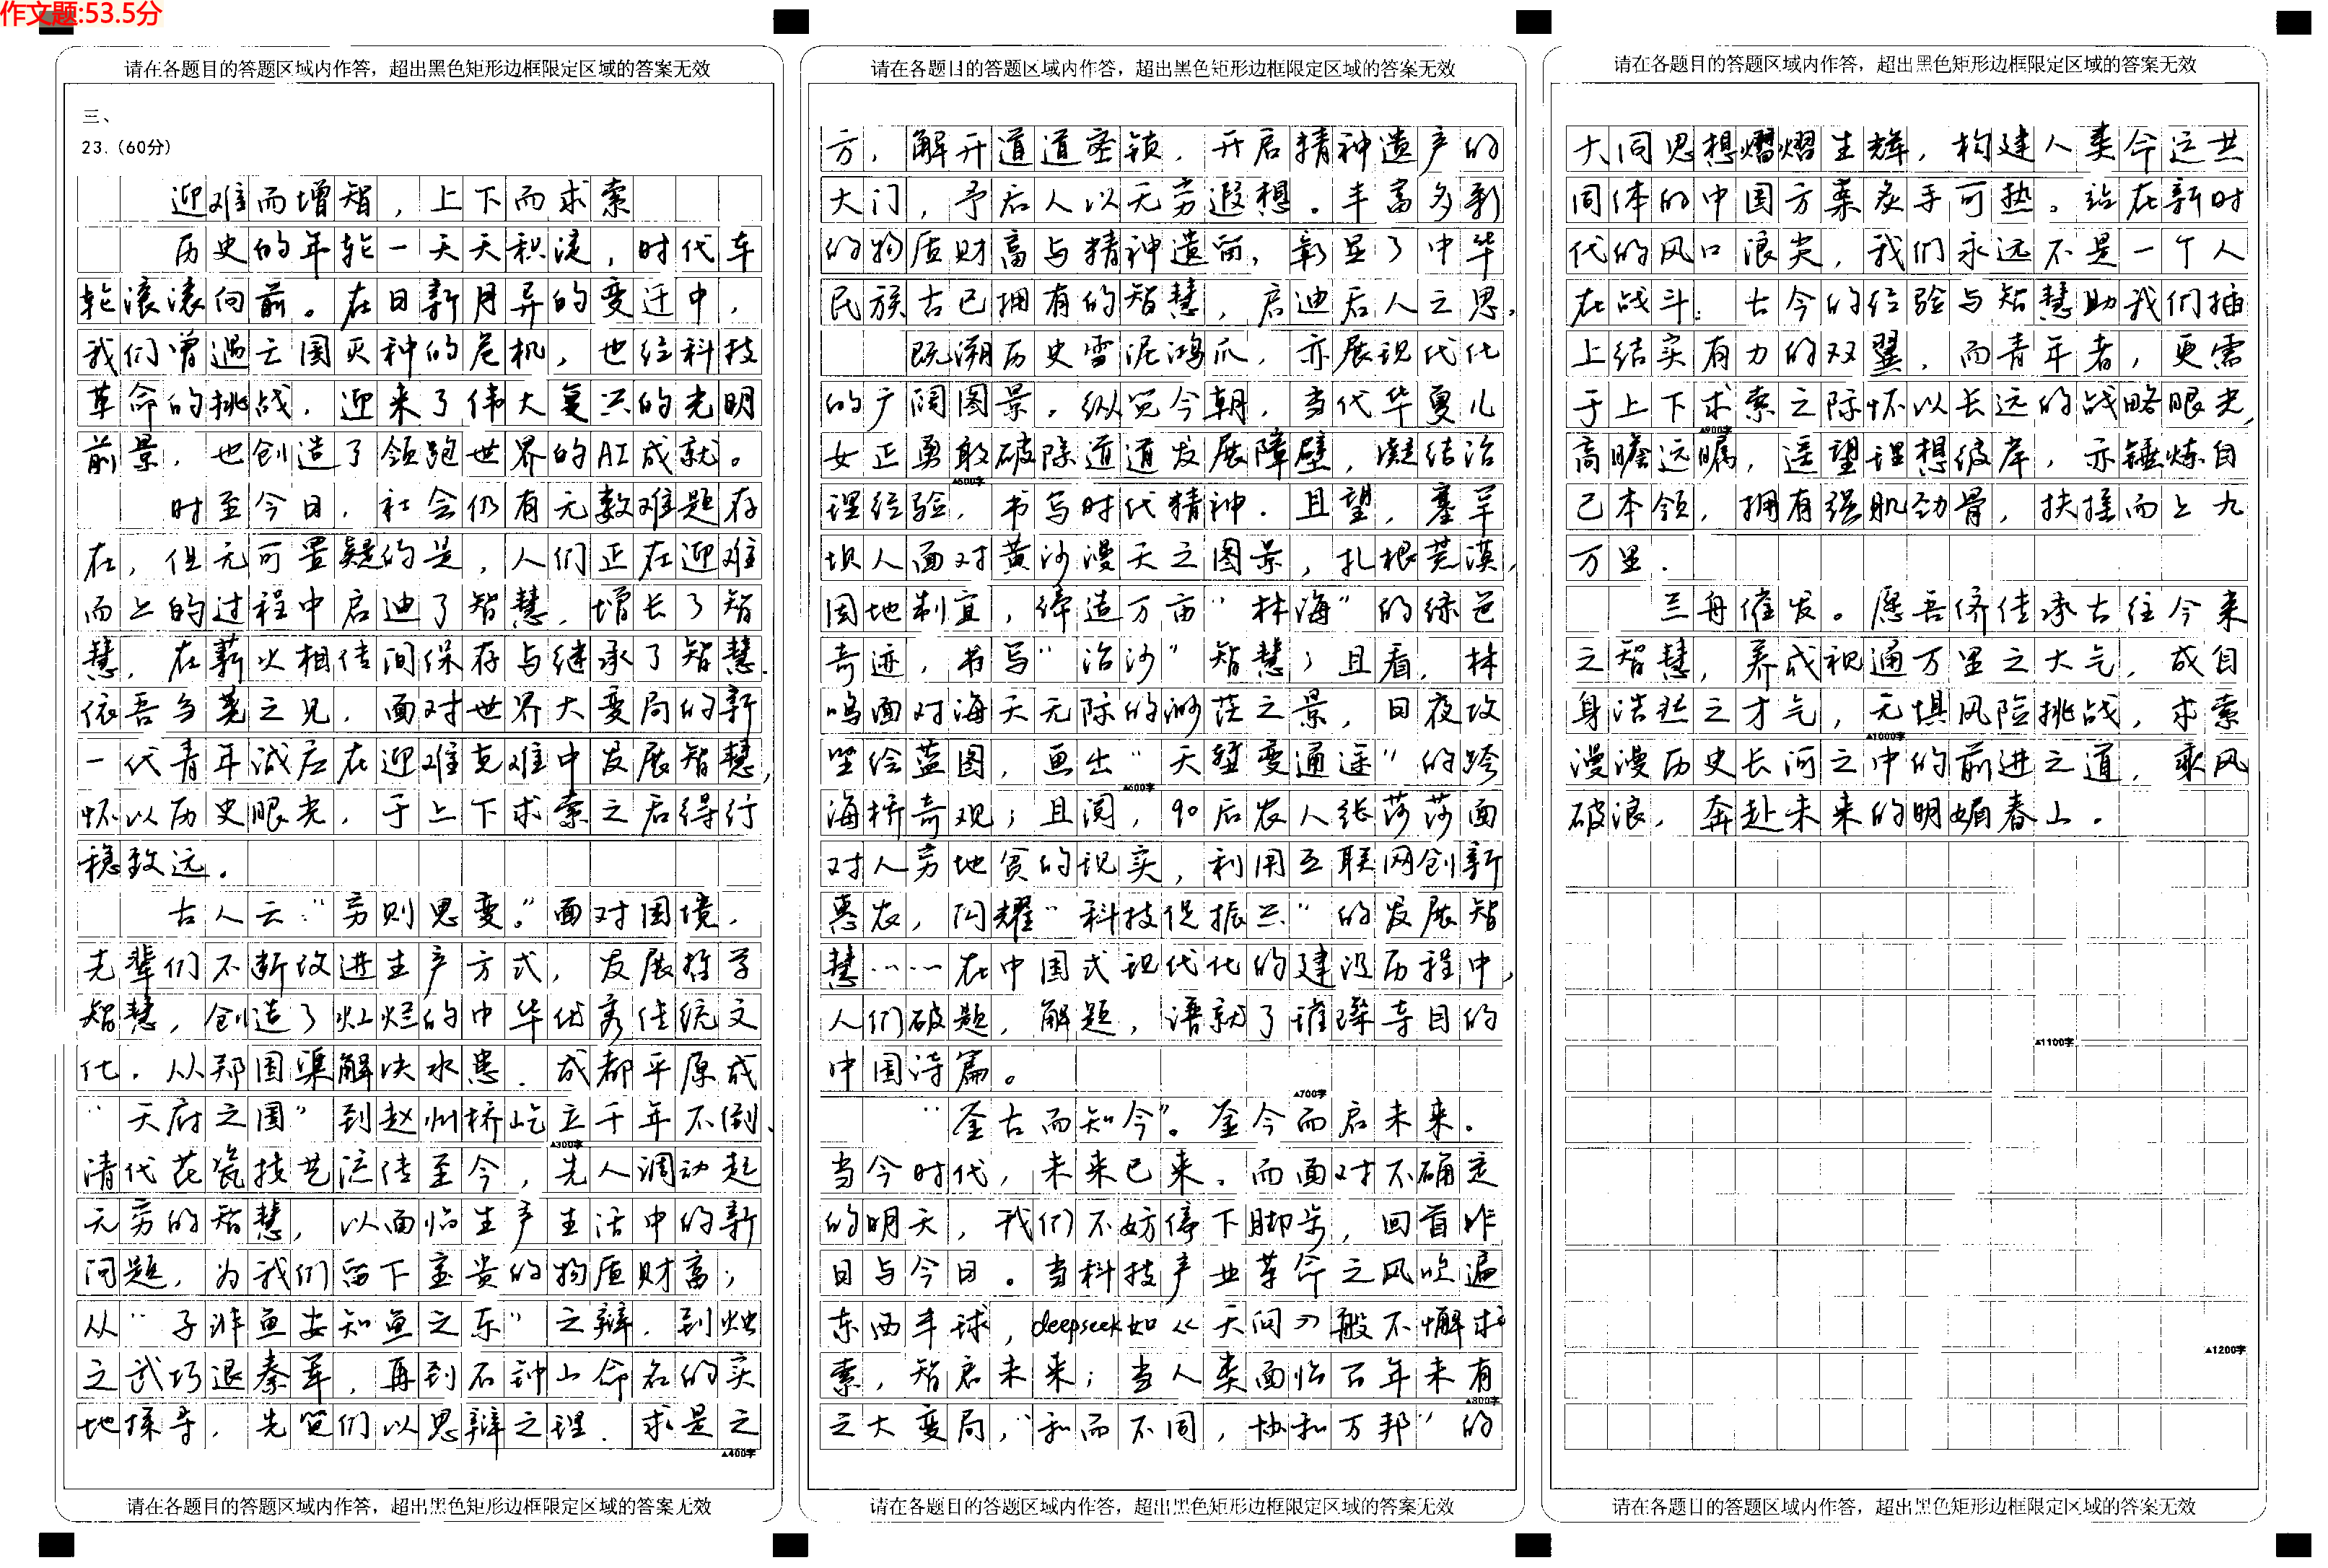 作文题:53.5分
请在各题目的答题区域内作答，超出黑色矩形边框限定区域的答案无效
三、
23.（60分）
迎难而增智，上下而求索
历史的年轮一天天积淀，时代车
轮滚滚向前。在日新月异的变迁中，
我们曾遇亡国灭种的危机，也经科技
革命的挑战，迎来了伟大复兴的光明
前景，也创造了领跑世界的AI成就。
时至今日，社会仍有无数难题存
在，但无可置疑的是，人们正在迎难
而上的过程中启迪了智慧，增长了智
慧，在薪火相传间保存与继承了智慧.
依吾刍荛之见，面对世界大变局的新
一代青年诚应在迎难克难中发展智慧，
怀以历史眼光，于上下求索之后得行
稳致远。
古人云："穷则思变。"面对困境，
先辈们不断改进生产方式，发展哲学
智慧，创造了灿烂的中华优秀传统文
化。从郑国渠解决水患、成都平原成
"天府之国"到赵州桥屹立千年不倒、
▲300字
清代花瓷技艺流传至今，先人调动起
无穷的智慧，以面临生产生活中的新
问题，为我们留下宝贵的物质财富；
从"子非鱼安知鱼之乐"之辩，到烛
之武巧退秦军，再到石钟山命名的实
地探寻，先贤们以思辩之理、求是之
▲400字
请在各题目的答题区域内作答，超出黑色矩形边框限定区域的答案无效
请在各题目的答题区域内作答，超出黑色矩形边框限定区域的答案无效
方，解开道道密锁，开启精神遗产的
大门，予后人以无穷遐想。丰富多彩
的物质财富与精神遗留，彰显了中华
民族古已拥有的智慧，启迪后人之思.
既溯历史雪泥鸿爪，亦展现代化
的广阔图景。纵览今朝，当代华夏儿
女正勇敢破除道道发展障壁，凝结治
▲500字
理经验，书写时代精神。且望，塞罕
坝人面对黄沙漫天之图景，扎根荒漠，
因地制宜，缔造万亩"林海"的绿色
奇迹，书写"治沙"智慧；且看，林
鸣面对海天无际的渺茫之景，日夜攻
坚绘蓝图，画出"天堑变通途"的跨
▲600字
海桥奇观；且阅，90后农人张莎莎面
对人穷地贫的现实，利用互联网创新
惠农，闪耀"科技促振兴"的发展智
慧……在中国式现代化的建设历程中，
人们破题，解题，谱就了璀璨夺目的
中国诗篇。
▲700字
"鉴古而知今"。鉴今而启未来。
当今时代，未来已来。而面对不确定
的明天，我们不妨停下脚步，回首昨
日与今日。当科技产业革命之风吹遍
东西半球，deepseek如《天问》般不懈求
索，智启未来；当人类面临百年未有
▲800字
之大变局，"和而不同，协和万邦"的
请在各题目的答题区域内作答，超出黑色矩形边框限定区域的答案无效
请在各题目的答题区域内作答，超出黑色矩形边框限定区域的答案无效
大同思想熠熠生辉，构建人类命运共
同体的中国方案炙手可热。站在新时
代的风口浪尖，我们永远不是一个人
在战斗：古今的经验与智慧助我们插
上结实有力的双翼，而青年者，更需
于上下求索之际怀以长远的战略眼光，
▲900字
高瞻远瞩，遥望理想彼岸，亦锤炼自
己本领，拥有强肌劲骨，扶摇而上九
万里.
兰舟催发。愿吾侪传承古往今来
之智慧，养成视通万里之大气，成自
身浩然之才气，无惧风险挑战，求索
▲1000字
漫漫历史长河之中的前进之道，乘风
破浪，奔赴未来的明媚春山。
▲1100字
▲1200字
请在各题目的答题区域内作答，超出黑色矩形边框限定区域的答案无效